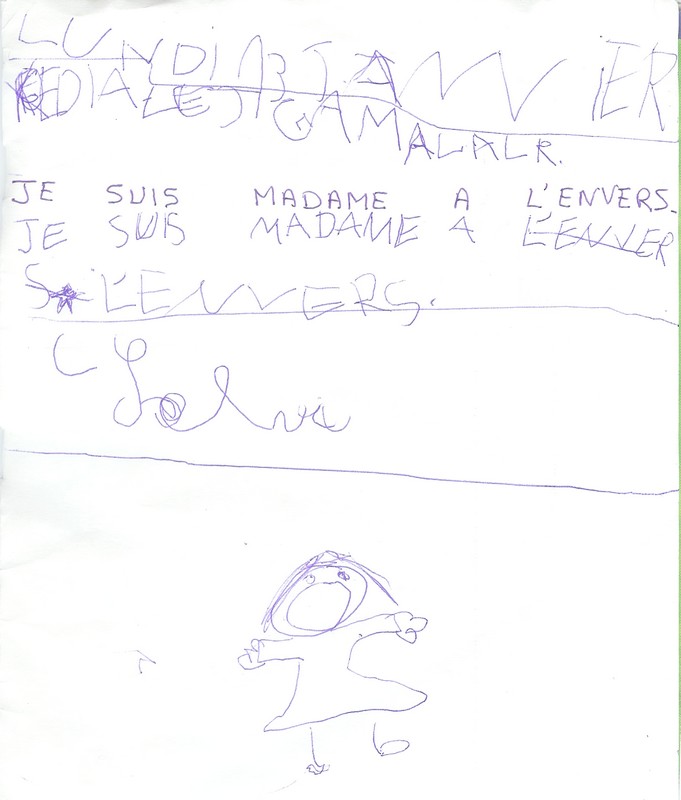 LUNDI 13 JANVIER
GAMALALR.
JE SUIS MADAME A L'ENVERS.
JE SUIS MADAME A L'ENVER
S L'ENVERS.